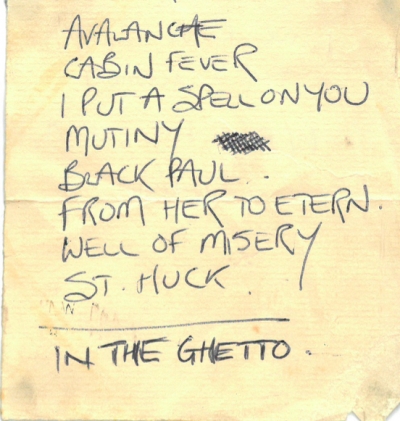 AVALANCHE
CABIN FEVER
I PUT A SPELL ON YOU
MUTINY
BLACK PAUL.
FROM HER TO ETERN.
WELL OF MISERY
ST. HUCK
IN THE GHETTO.